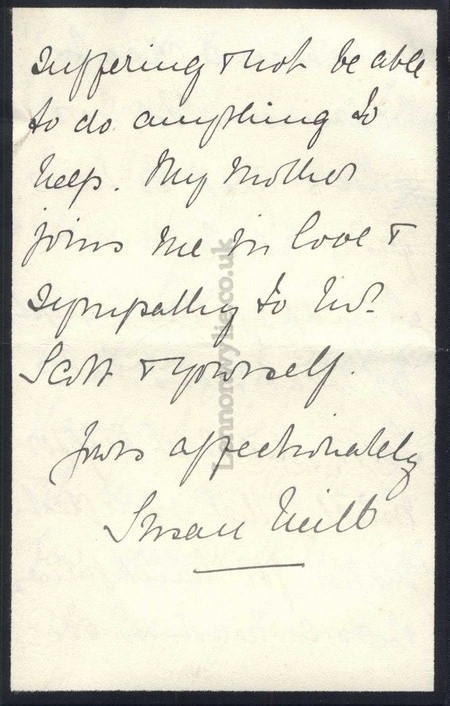 suffering & not be able
to do anything to
help. My Mother
joins me in love &
sympathy to Mr.
Scott & yourself.
Yours affectionately
Susan
Lennonwylie.co.uk